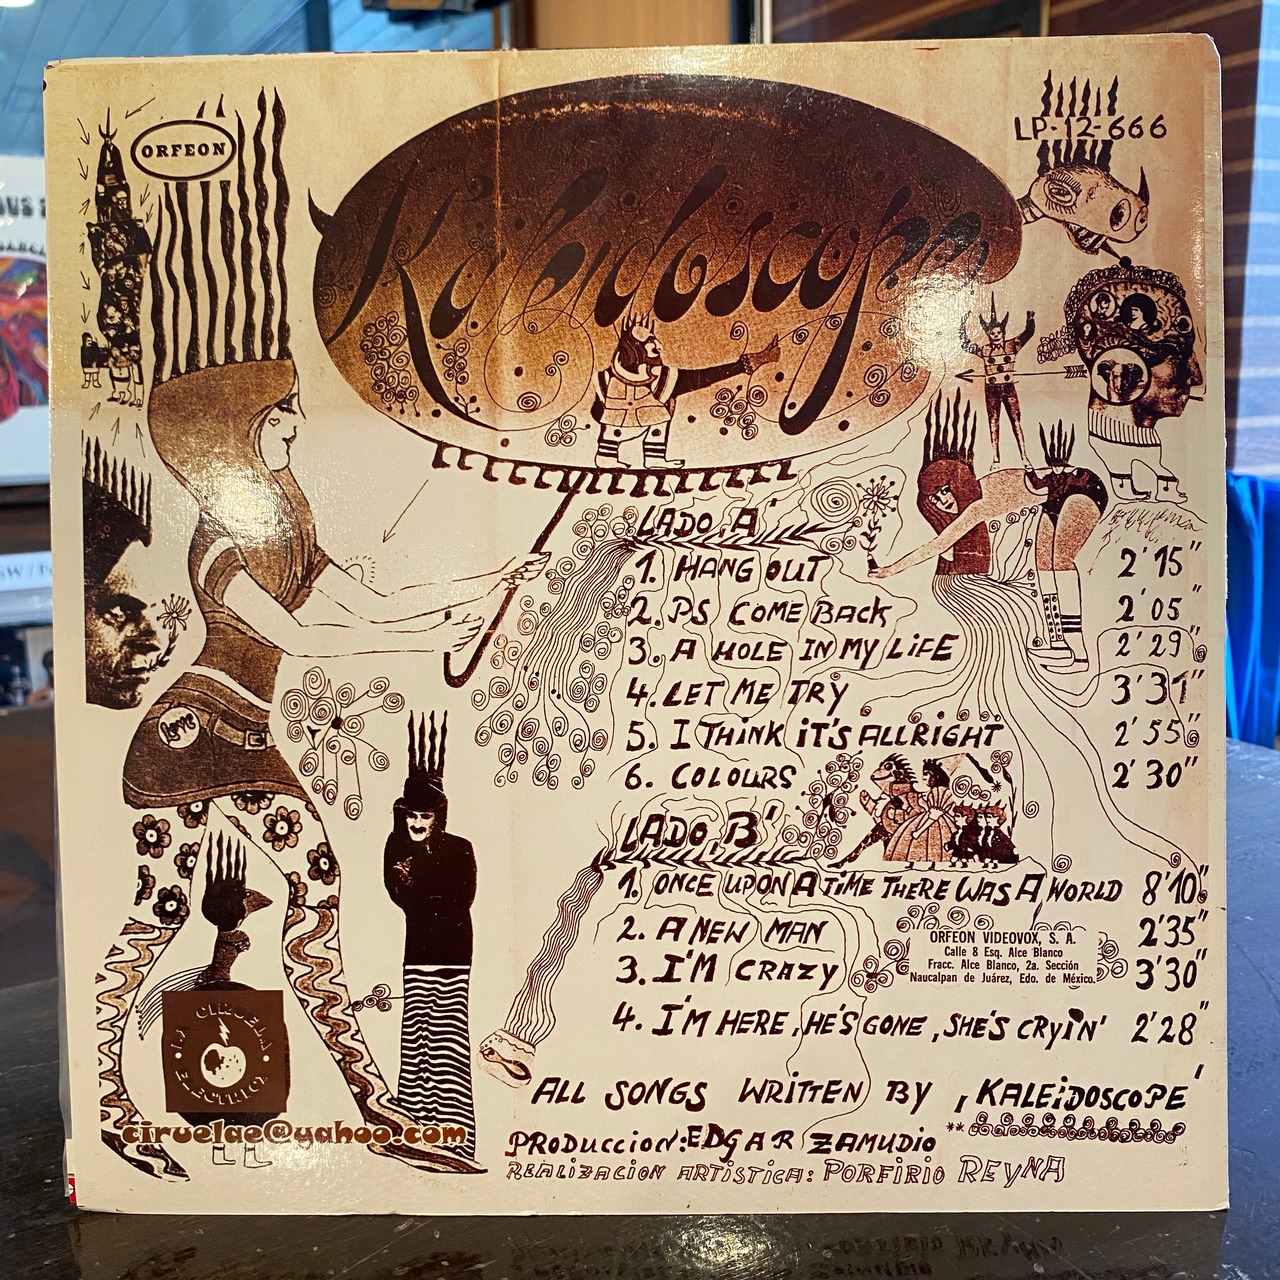 ORFEON
LP-12-666
Kaleidoscope
LADO, A'
1. HANG OUT 2'15"
2. PS COME BACK 2'05"
3. A HOLE IN MY LIFE 2'29"
4. LET ME TRY 3'31"
5. I THINK IT'S ALLRIGHT 2'55"
6. COLOURS 2'30"
Love
LADO, B'
1. ONCE UPON A TIME THERE WAS A WORLD 8'10"
2. A NEW MAN 2'35"
3. I'M CRAZY 3'30"
4. I'M HERE, HE'S GONE, SHE'S CRYIN' 2'28"
ORFEON VIDEOVOX, S. A.
Calle 8 Esq. Alce Blanco
Fracc. Alce Blanco, 2a. Sección
Naucalpan de Juárez, Edo. de México.
LA CIRUELA ELECTRICA
ciruelae@yahoo.com
ALL SONGS WRITTEN BY , KALEIDOSCOPE'
PRODUCCION: EDGAR ZAMUDIO
REALIZACION ARTISTICA: PORFIRIO REYNA